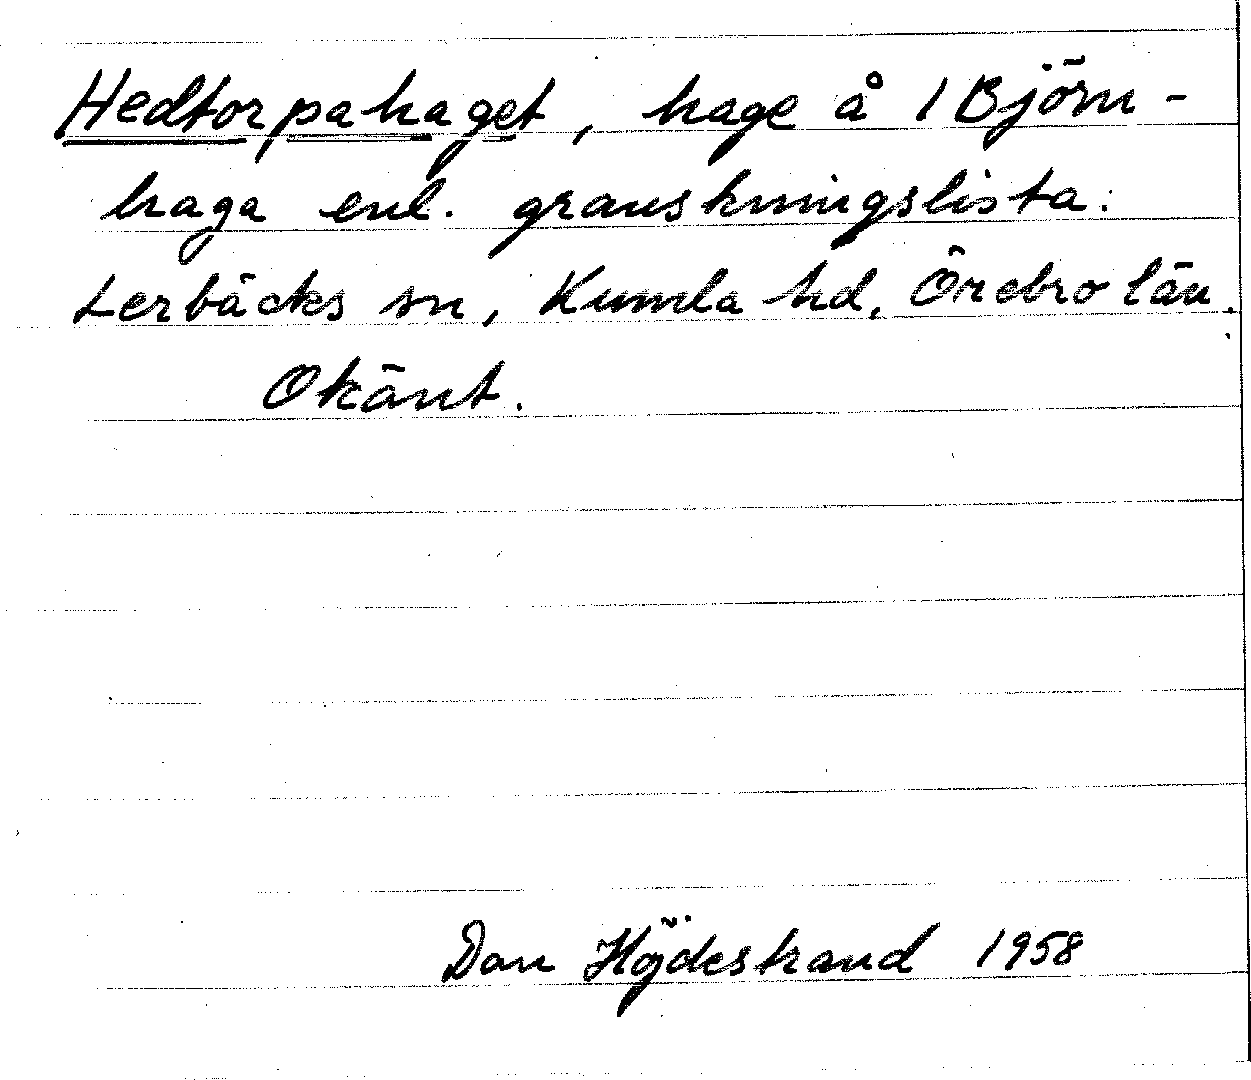 Hedtorpahaget, hage å 1 Björn-
haga enl. granskningslista.
Lerbäcks sn, Kumla hd, Örebro län.
Okänt.
Dan Höjdestrand 1958